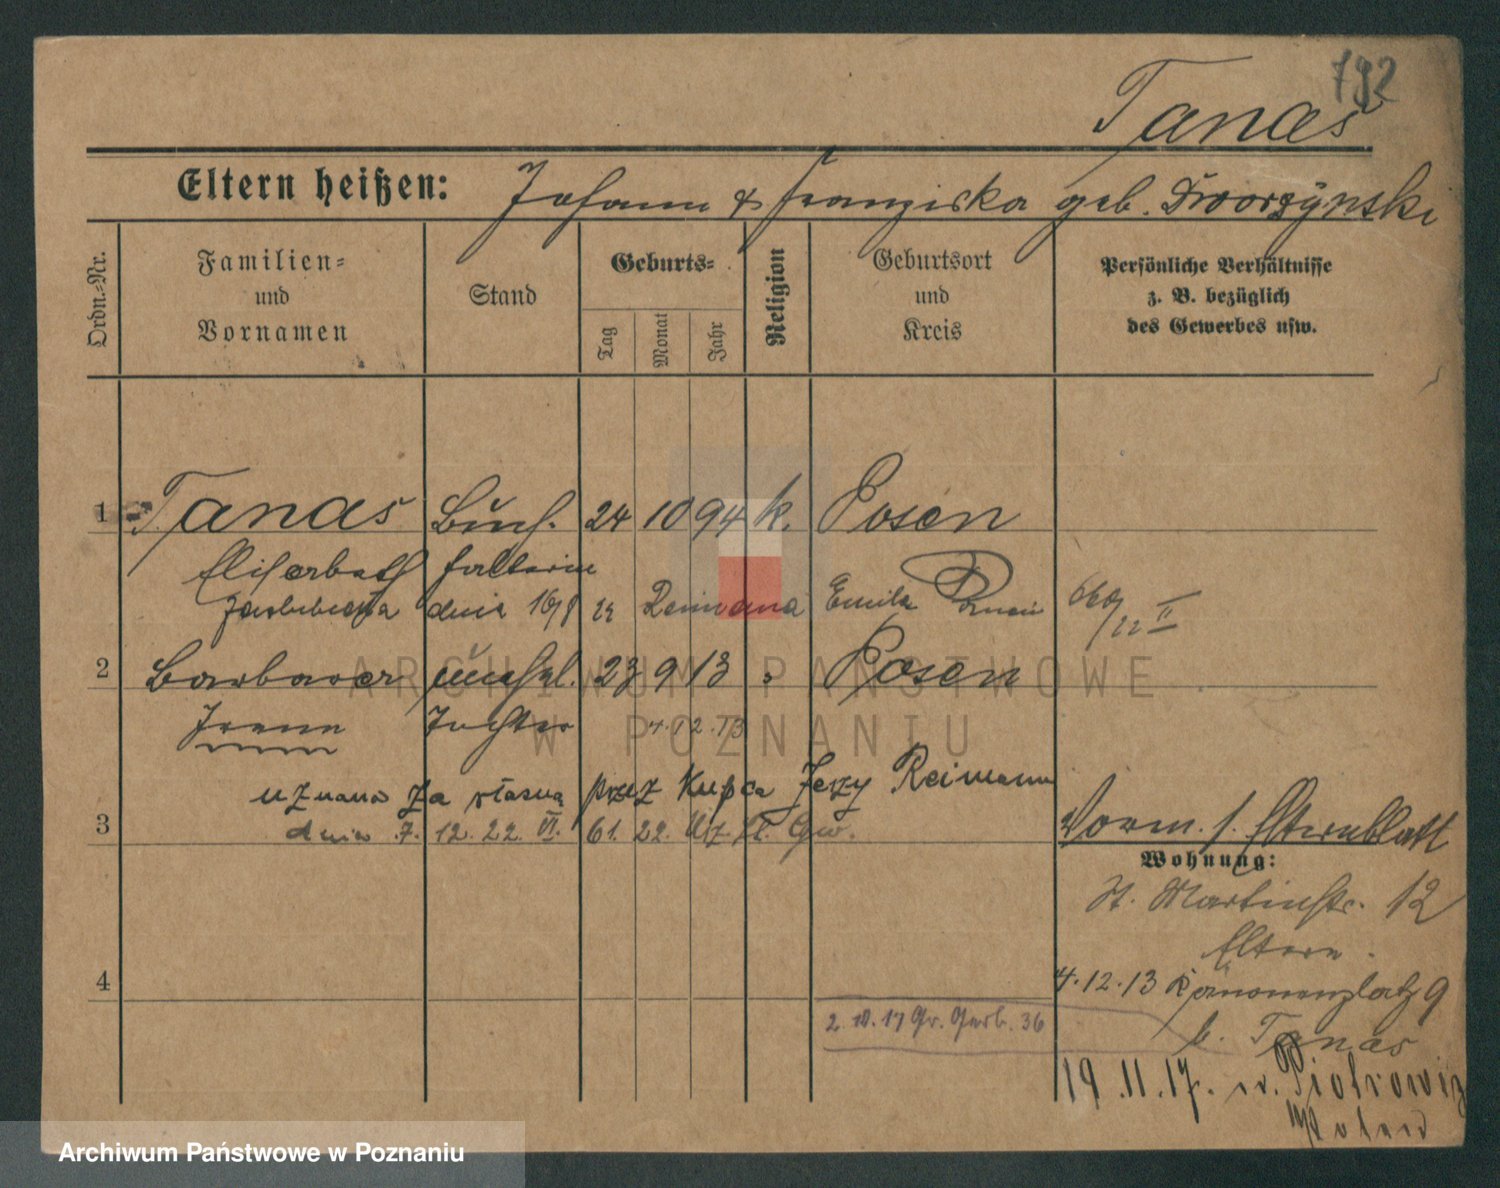 792
Tanaś
Eltern heißen: Johann & Franziska geb. Dworzynski
Ordn.-Nr.
Familien-
und
Vornamen
Stand
Geburts-
Tag
Monat
Jahr
Religion
Geburtsort
und
Kreis
Persönliche Verhältnisse
z. B. bezüglich
des Gewerbes usw.
1 Tanas Buch- 24 10 94 k. Posen
Elisabeth halterin
dnia 16/8 22 Reimana Emila
2 Barbara unehel. 23 9 13 " Posen
Irene Tochter 4.12.13
uznana za własną przez kupca Jerzy Reimann
3 dnia 7. 12. 22. VI. 61. 22.
Vorm. s. Elternblatt
Wohnung:
St. Martinstr. 12
Eltern.
4
4.12.13 9
b. Tanas
2.10.17 Gr. Gerb. 36
19.11.17. n. Piotrowiz
Poland
ARCHIWUM PAŃSTWOWE
W POZNANIU
Archiwum Państwowe w Poznaniu